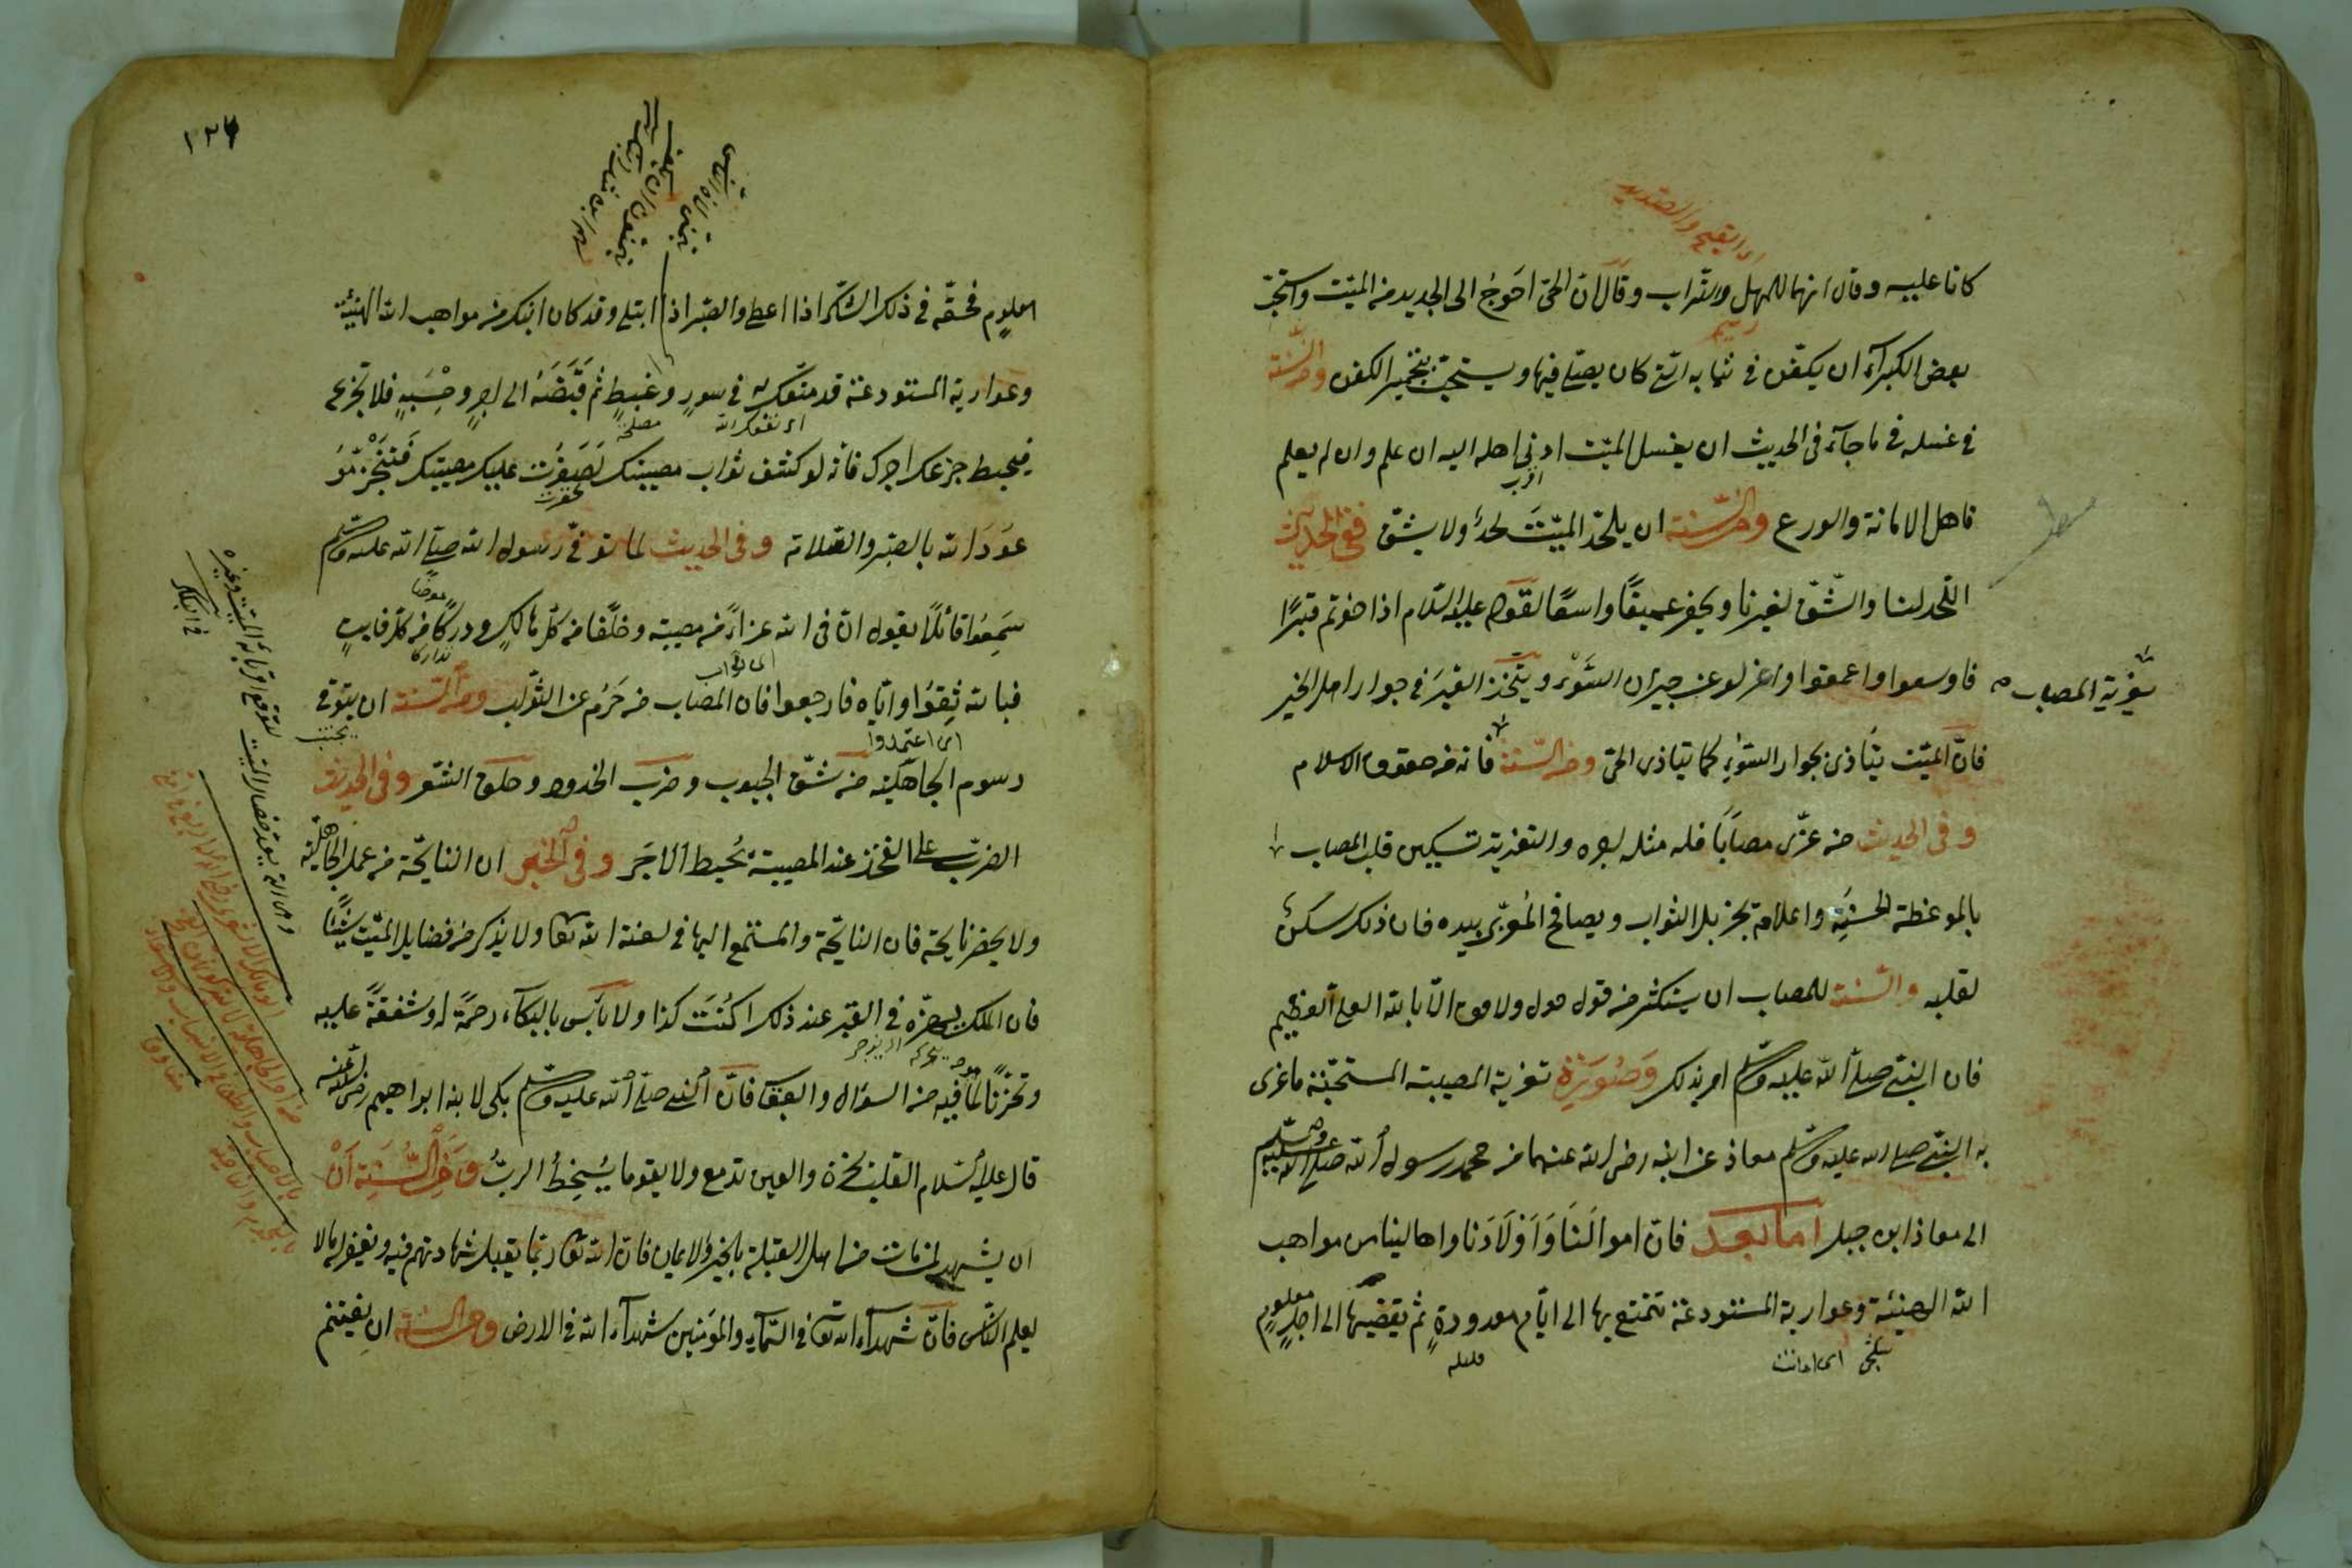 كانا عليه وقال انهما للمهل والتراب وقال ان الحي احوج الى الجديد من الميت واستحب
بعض الكبراء ان يكفن في ثيابه التي كان يصلي فيها ويستحب تجمير الكفن ومن السنة
في غسله في ما جاء في الحديث ان يغسل الميت ادنى اهله اليه ان علم وان لم يعلم
فاهل الامانة والورع ومن السنة ان يلحد الميت لحدا ولا يشق ففي الحديث
اللحد لنا والشق لغيرنا ويحفر عميقا واسعا لقوله عليه السلام اذا حفرتم قبرا
فاوسعوا واعمقوا واعزلوا عن جيران السوء ويتخذ القبر في جوار اهل الخير
تعزية المصاب
فان الميت يتاذى بجوار السوء كما يتاذى الحي ومن السنة فانه من حقوق الاسلام
وفي الحديث من عزى مصابا فله مثل اجره والتعزية تسكين قلب المصاب
بالموعظة الحسنة واعلامه بجزيل الثواب ويصافح المعزى بيده فان ذلك سكن
لقلبه والسنة للمصاب ان يستكثر من قول لا حول ولا قوة الا بالله العلي العظيم
فان النبي صلى الله عليه وسلم امر بذلك وصورة تعزية المصيبة المستحبة ما عزى
به النبي صلى الله عليه وسلم معاذ عن ابنه رضي الله عنهما من محمد رسول الله صلى الله عليه وسلم
الى معاذ ابن جبل اما بعد فان اموالنا واولادنا واهالينا من مواهب
الله الهنيئة وعواريه المستودعة نتمتع بها الى ايام معدودة ثم يقبضها الى اجل معلوم
١٢٦
معلوم فحقه في ذلك الشكر اذا اعطى والصبر اذا ابتلى وقد كان ابنك من مواهب الله الهنيئة
وعواريه المستودعة قد متعك به في سرور وغبطة ثم قبضه الى اجر وحسبة فلا تجزع
فيحبط جزعك اجرك فانه لو كشف ثواب مصيبتك لصغرت عليك مصيبتك فتنجز
وعد الله بالصبر والصلاة وفي الحديث لما توفي رسول الله صلى الله عليه وسلم
سمعوا قائلا يقول ان في الله عزاء من مصيبة وخلفا من كل هالك ودركا من كل فايت
فبالله ثقوا واياه فارجعوا فان المصاب من حرم عن الثواب ومن السنة ان يتوقى
رسوم الجاهلية من شق الجيوب وضرب الخدود وحلق الشعر وفي الحديث
الضرب على الفخذ عند المصيبة يحبط الاجر وفي الخبر ان النايحة من عمل الجاهلية
ولا يحضر نايحة فان النايحة والمستمع اليها في لعنة الله تعالى ولا يذكر من فضايل الميت شيئا
فان الملك يهزه في القبر عند ذلك اكنت كذا ولا باس بالبكاء رحمة له وشفقة عليه
وتحزنا لما فيه من السؤال والعقاب فان النبي صلى الله عليه وسلم بكى لابنه ابراهيم رضي الله عنه
قال عليه السلام القلب يحزن والعين تدمع ولا يقول ما يسخط الرب ومن السنة ان
ان يشهد لمن مات من اهل القبلة بالخير والايمان فان الله تعالى ربما يقبل شهادتهم فيه ويغفر له ما لا
يعلم الناس فان شهداء الله تعالى في السماء والمؤمنين شهداء الله في الارض ومن السنة ان يغتنم